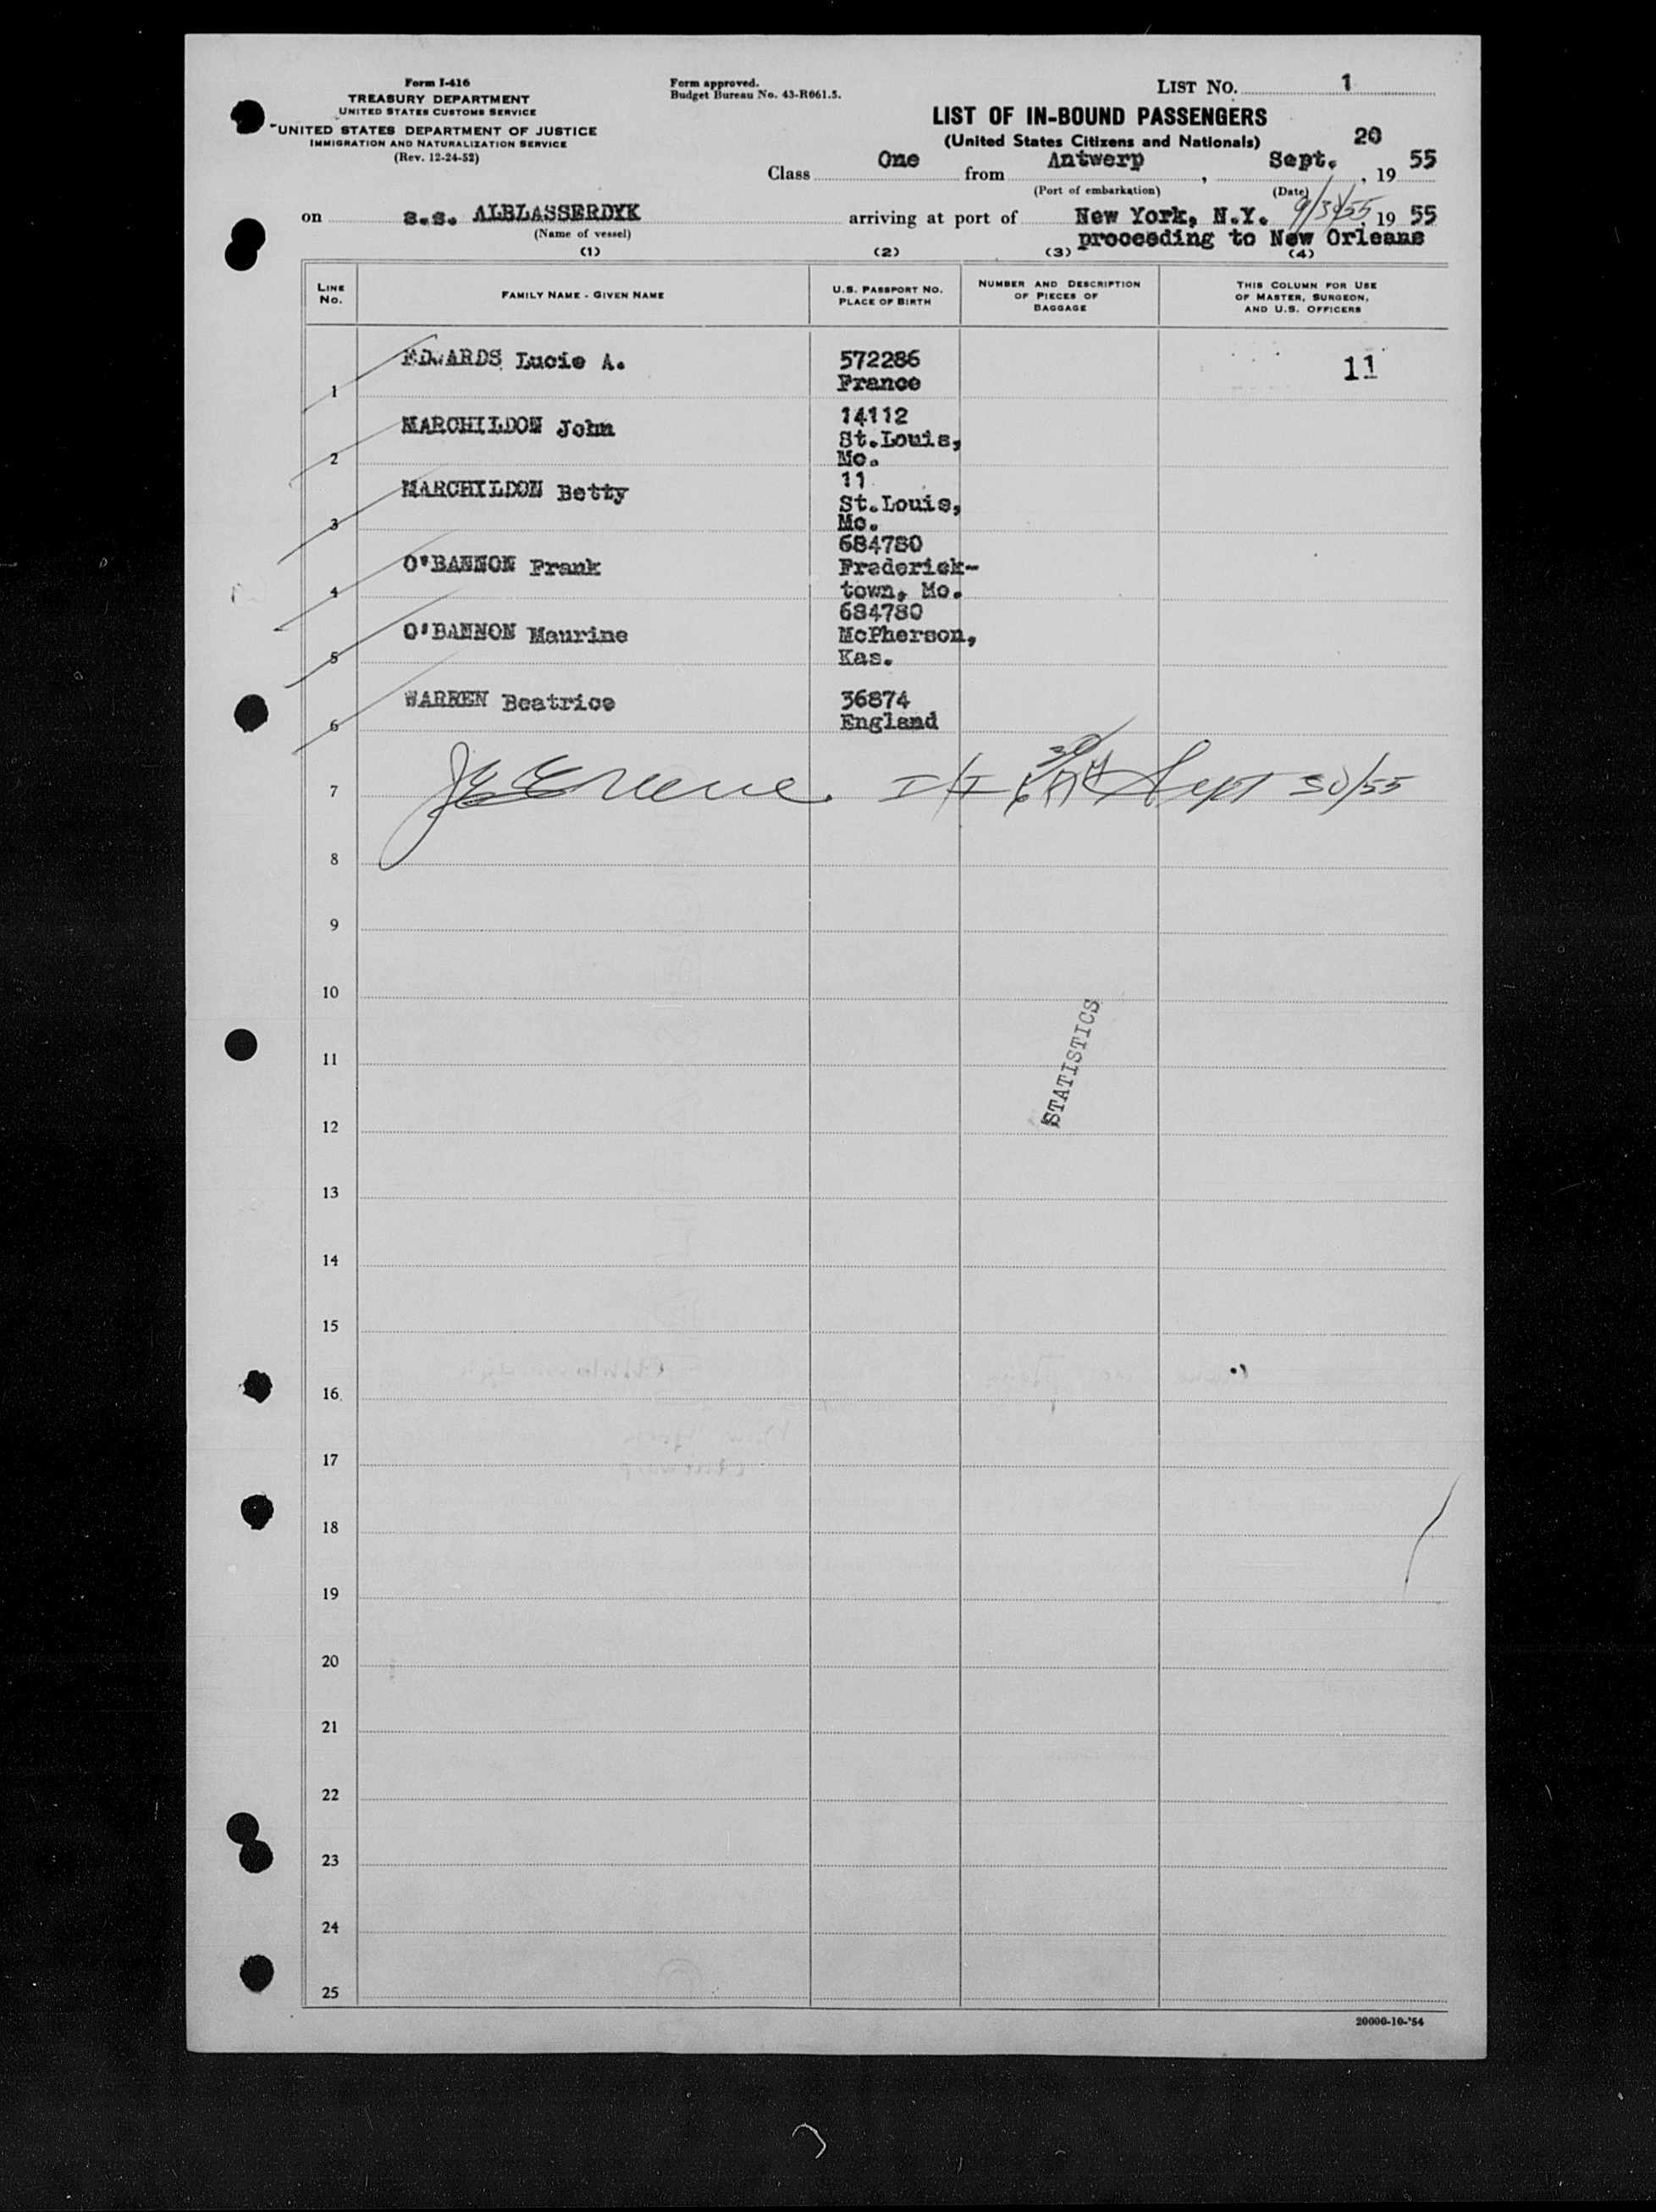 Form I-416
TREASURY DEPARTMENT
UNITED STATES CUSTOMS SERVICE
UNITED STATES DEPARTMENT OF JUSTICE
IMMIGRATION AND NATURALIZATION SERVICE
(Rev. 12-24-52)
Form approved.
Budget Bureau No. 43-R061.5.
LIST NO. 1
LIST OF IN-BOUND PASSENGERS
(United States Citizens and Nationals)
Class One from Antwerp, Sept. 20, 19 55
(Port of embarkation) (Date)
on s.s. ALBLASSERDYK arriving at port of New York, N.Y. 9/30/55, 19 55
(Name of vessel) proceeding to New Orleans
(1) (2) (3) (4)
LINE No. FAMILY NAME - GIVEN NAME U.S. PASSPORT NO. PLACE OF BIRTH NUMBER AND DESCRIPTION OF PIECES OF BAGGAGE THIS COLUMN FOR USE OF MASTER, SURGEON, AND U.S. OFFICERS
1 EDWARDS Lucie A. 572286 11
France
2 MARCHILDON John 14112
St.Louis,
Mo.
3 MARCHILDON Betty 11
St.Louis,
Mo.
4 O'BANNON Frank 684780
Frederick-
town, Mo.
5 O'BANNON Maurine 684780
McPherson,
Kas.
6 WARREN Beatrice 36874
England
7 Greene Sept 30/55
8
9
10
11
STATISTICS
12
13
14
15
16
17
18
19
20
21
22
23
24
25
20000-10-'54